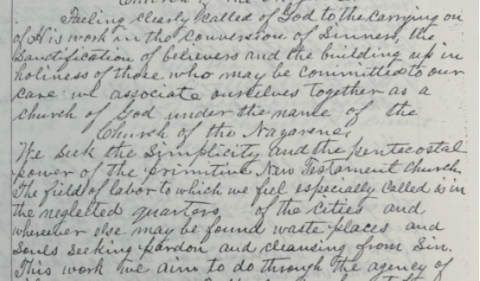 Feeling clearly called of God to the carrying on
of His work in the conversion of Sinners, the
Sanctification of believers and the building up in
holiness of those who may be committed to our
care we associate ourselves together as a
church of God under the name of the
Church of the Nazarene,
We seek the Simplicity and the pentecostal
power of the primitive New Testament church.
The field of labor to which we feel especially called is in
the neglected quarters of the cities and
wherever else may be found waste places and
Souls Seeking pardon and cleansing from Sin.
This work we aim to do through the agency of